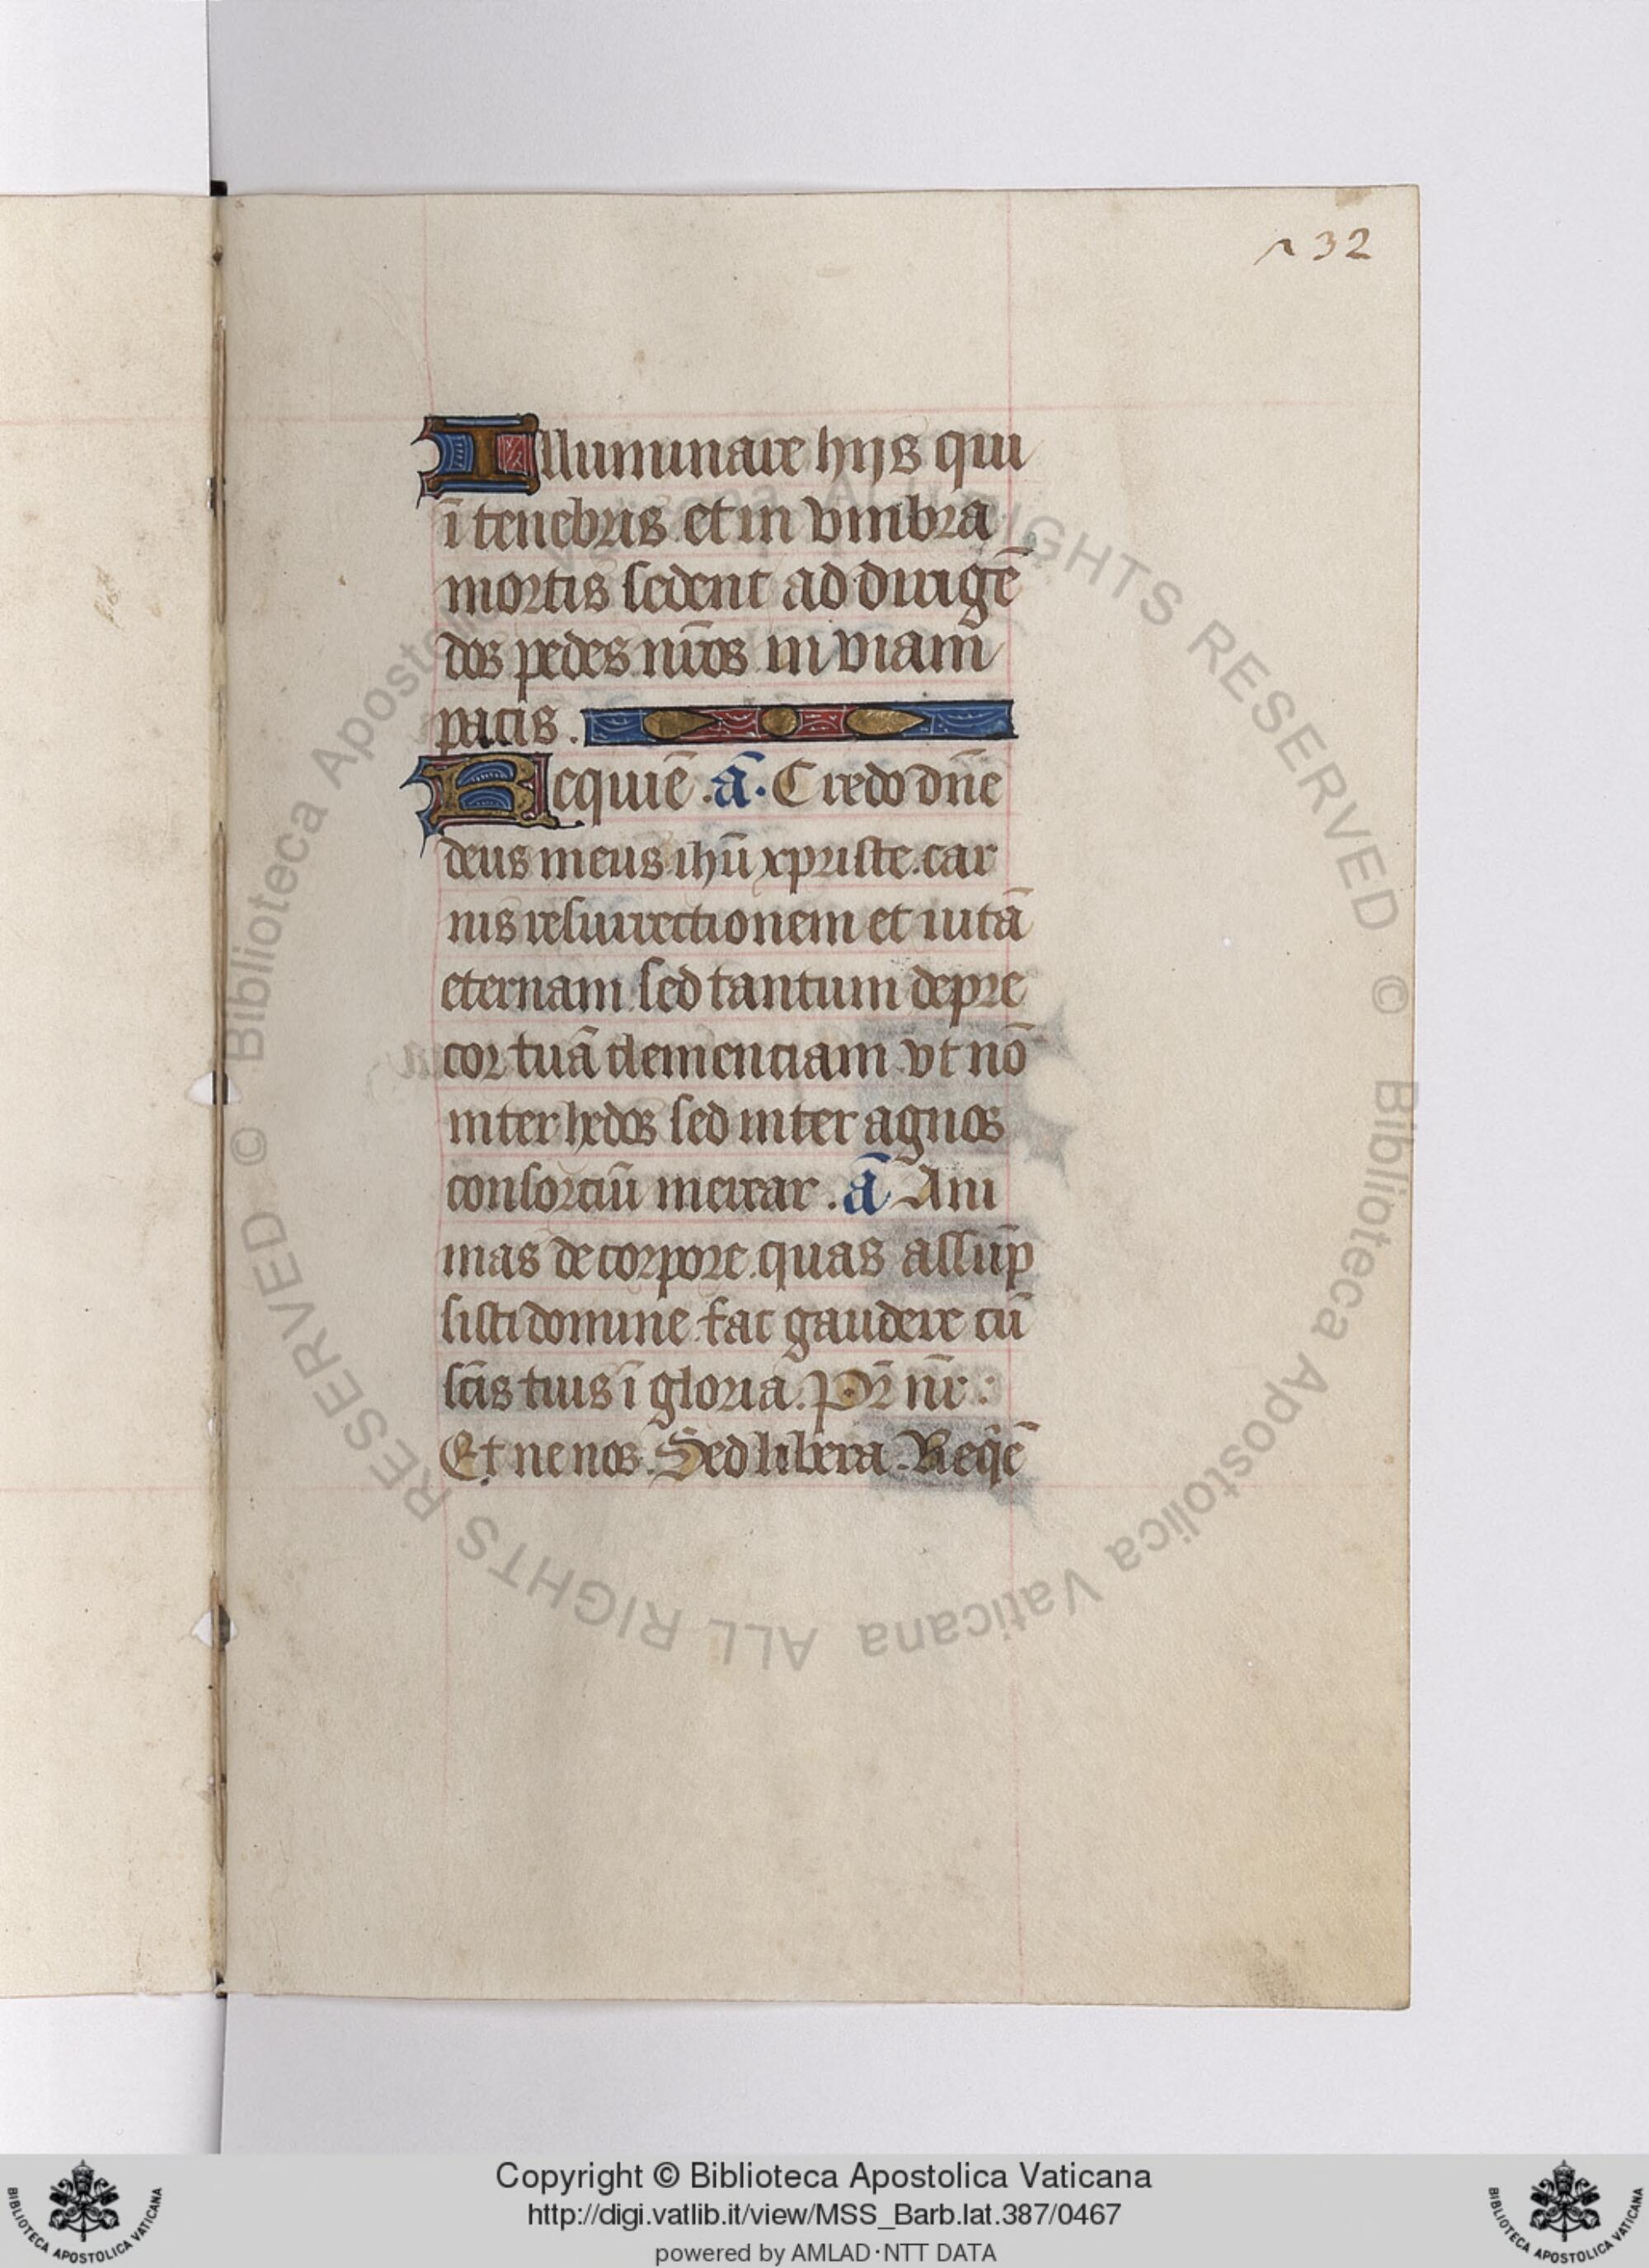 232
Illuminare hijs qui
ī tenebris et in vmbra
mortis sedent ad dirigē
dos pedes nr̄os in viam
pacis.
Requiē. ā. Credo dn̄e
deus meus ihū xpriste car
nis resurrectionem et uitā
eternam sed tantum depre
cor tuā clemenciam vt nō
inter hedos sed inter agnos
consorciū merear. ā Ani
mas de corpore quas assūp
sisti domine fac gaudere cū
sc̄is tuis ī gloria. Pr̄ nr̄:
Et ne nos. Sed libera. Req̄ē
© Biblioteca Apostolica Vaticana ALL RIGHTS RESERVED © Biblioteca Apostolica Vaticana ALL RIGHTS RESERVED
Copyright © Biblioteca Apostolica Vaticana
http://digi.vatlib.it/view/MSS_Barb.lat.387/0467
powered by AMLAD·NTT DATA
BIBLIOTECA APOSTOLICA VATICANA
BIBLIOTECA APOSTOLICA VATICANA